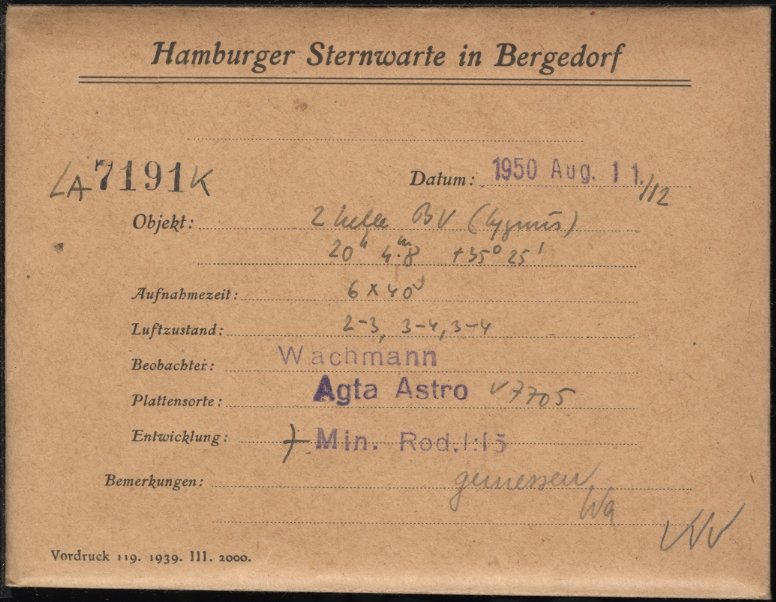 Hamburger Sternwarte in Bergedorf
LA 7191 K
Datum: 1950 Aug. 11./12
Objekt: 2 helle BV (Cygnus)
20h 4m.8 +35° 25'
Aufnahmezeit: 6 x 40
Luftzustand: 2-3, 3-4, 3-4
Beobachter: Wachmann
Plattensorte: Agfa Astro V7705
Entwicklung: Min. Rod. 1:15
Bemerkungen: gemessen
Wa
Vordruck 119. 1939. III. 2000.